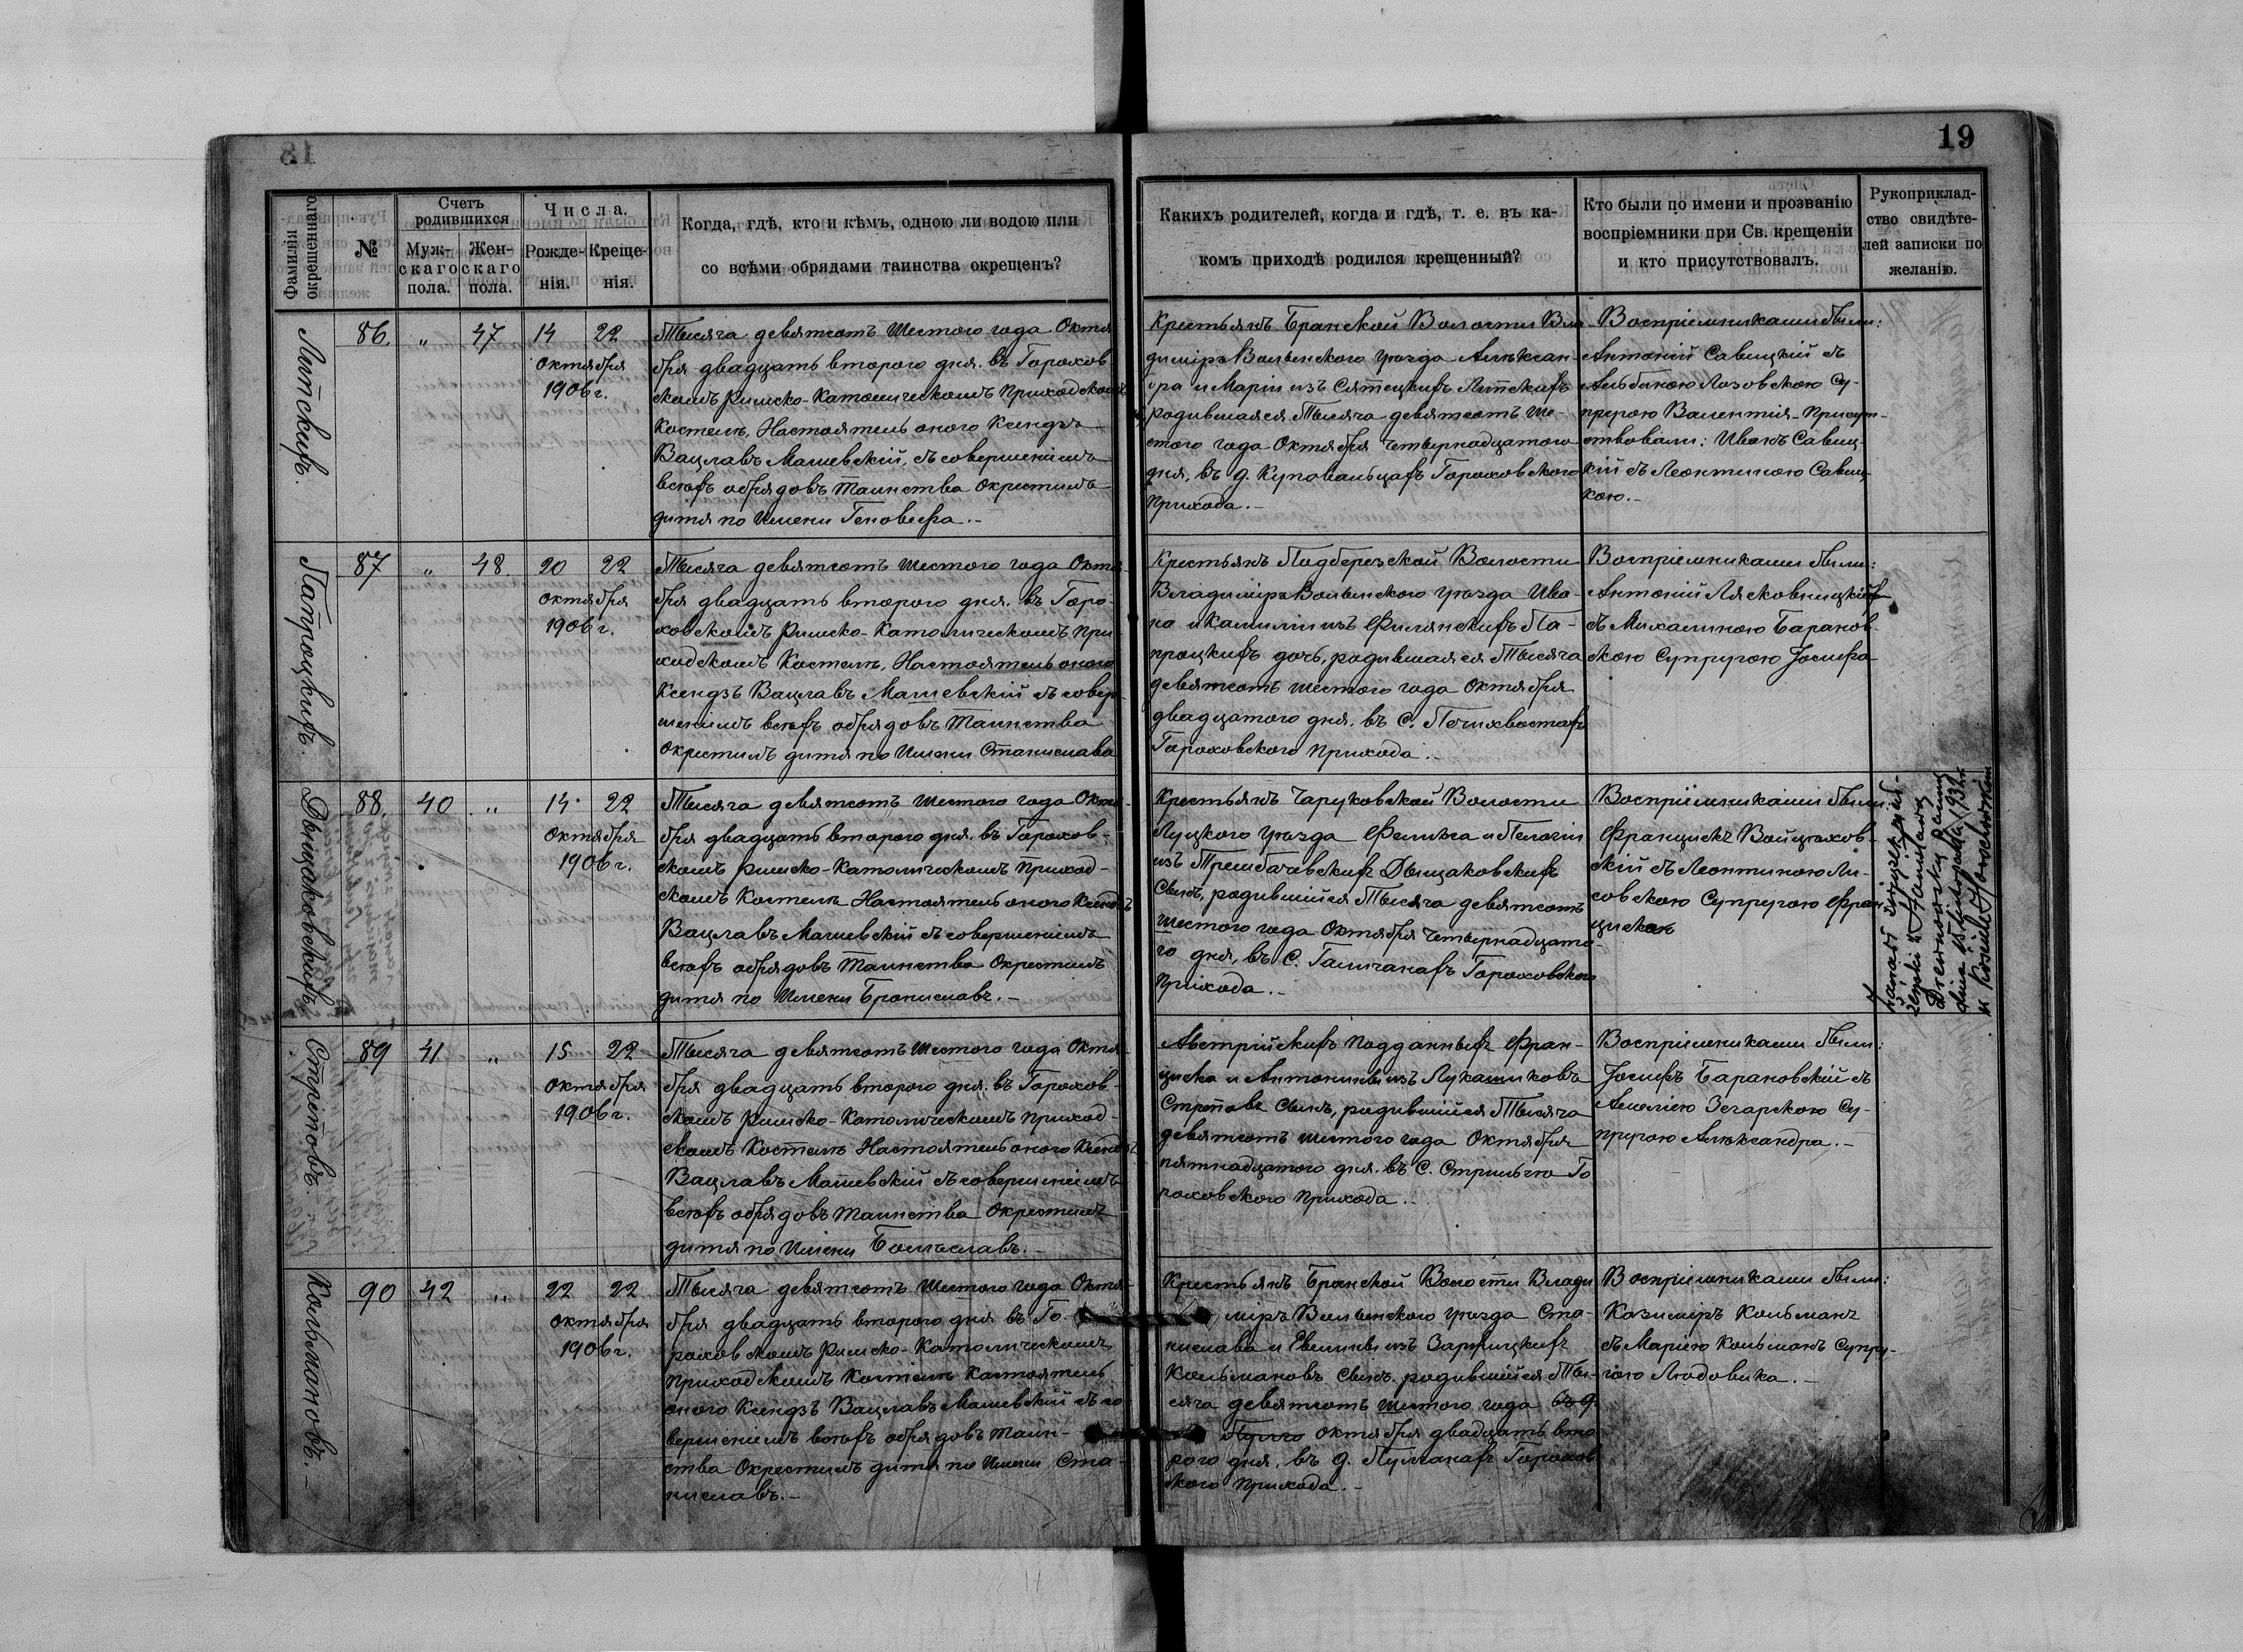 19
Фамилія окрещеннаго
№
Счетъ родившихся
Муж-
скаго
пола.
Жен-
скаго
пола.
Числа.
Рожде-
нія.
Креще-
нія.
Когда, гдѣ, кто и кѣмъ, одною ли водою или
со всѣми обрядами таинства окрещенъ?
Какихъ родителей, когда и гдѣ, т. е. въ ка-
комъ приходѣ родился крещенный?
Кто были по имени и прозванію
воспріемники при Св. крещеніи
и кто присутствовалъ.
Рукоприклад-
ство свидѣте-
лей записки по
желанію.
Липскихъ.
86. " 47 14 22
Октября
1906 г.
Тысяча девятсотъ Шестого года Октя
бря двадцать второго дня. въ Горохов
скомъ Римско-Католическомъ Приходскомъ
Костелѣ, Настоятель оного Ксендзъ
Вацлавъ Машевскій, съ совершеніемъ
всѣхъ обрядовъ Таинства Окрестилъ
дитя по Имени Геновефа.-
Крестьянъ Бранской Волости Вла-
диміръ Волынского уѣзда Алексан-
дра и Маріи изъ Сятецкихъ Липскихъ
родившаяся Тысяча девятсотъ Ше-
стого года Октября четырнадцатого
дня, въ д. Куповальцахъ Гороховского
Прихода.-
Воспріемниками были:
Антоній Савицкій съ
Альбиною Лозовскою Су-
пругою Валентія- Присут-
ствовали: Иванъ Савиц-
кій съ Леонтиною Савиц-
кою.-
Папроцкихъ.
87 " 48. 20 22
Октября
1906 г.
Тысяча девятсотъ Шестого года Октя-
бря двадцать второго дня. въ Горо-
ховскомъ Римско-Католическомъ При-
ходскомъ Костелѣ, Настоятель оного
Ксендзъ Вацлавъ Машевскій съ совер-
шеніемъ всѣхъ обрядовъ Таинства
Окрестилъ дитя по Имени Станислава
Крестьянъ Подберезской Волости
Владиміръ Волынского уѣзда Ива-
на и Камиліи изъ Филянскихъ Па-
процкихъ дочь, родившаяся Тысяча
девятсотъ шестого года Октября
двадцатого дня. въ С. Печихвостахъ
Гороховского Прихода.-
Воспріемниками были:
Антоній Лясковницкій
съ Михалиною Баранов-
скою Супругою Іосифа
Дыщаковскихъ.
88. 40 " 14 22
Октября
1906 г.
Тысяча девятсотъ Шестого года Октя-
бря двадцать второго дня. въ Горохов-
скомъ Римско-Католическомъ Приход-
скомъ Костелѣ Настоятель оного Ксендзъ
Вацлавъ Машевскій съ совершеніемъ
всѣхъ обрядовъ Таинства Окрестилъ
дитя по Имени Брониславъ.-
Крестьянъ Чаруковской Волости
Луцкого уѣзда Феликса и Пелагіи
изъ Трембачевскихъ Дыщаковскихъ
Сынъ, родившійся Тысяча девятсотъ
Шестого года Октября четырнадцато-
го дня, въ С. Галичанахъ Гороховского
Прихода.-
Воспріемниками были:
Францискъ Войцѣхов-
скій съ Леонтиною Ли-
совскою Супругою Фран-
циска
Стрѣповъ.
89 41 " 15 22
Октября
1906 г.
Тысяча девятсотъ Шестого года Октя-
бря двадцать второго дня. въ Горохов-
скомъ Римско-Католическомъ Приход-
скомъ Костелѣ Настоятель оного Ксендзъ
Вацлавъ Машевскій съ совершеніемъ
всѣхъ обрядовъ Таинства Окрестилъ
дитя по Имени Болеславъ.-
Австрійскихъ Подданныхъ Фран-
циска и Антонины изъ Лукашиковъ
Стрѣповъ Сынъ, родившійся Тысяча
девятсотъ шестого года Октября
пятнадцатого дня. въ С. Стрильче Го
роховского Прихода.-
Воспріемниками были:
Іосифъ Барановскій съ
Амеліею Згарскою Су-
пругою Александра.-
Кольмановъ.
90 42 " 22 22
Октября
1906 г.
Тысяча девятсотъ Шестого года Октя-
бря двадцать второго дня въ Го-
роховскомъ Римско-Католическомъ
Приходскомъ Костелѣ Настоятель
оного Ксендзъ Вацлавъ Машевскій съ со
вершеніемъ всѣхъ обрядовъ Таин-
ства Окрестилъ дитя по Имени Ста-
ниславъ.-
Крестьянъ Бранской Волости Влади
міръ Волынского уѣзда Ста-
нислава и Евелины изъ Зарицкихъ
Кольмановъ Сынъ. родившійся Ты-
сяча девятсотъ шестого года въ д.
Октября двадцать вто
рого дня, въ д. Пулганахъ Горохов
ского Прихода.-
Воспріемниками были:
Казиміръ Кольманъ
съ Маріею Кольманъ Супру-
гою Людовика.-